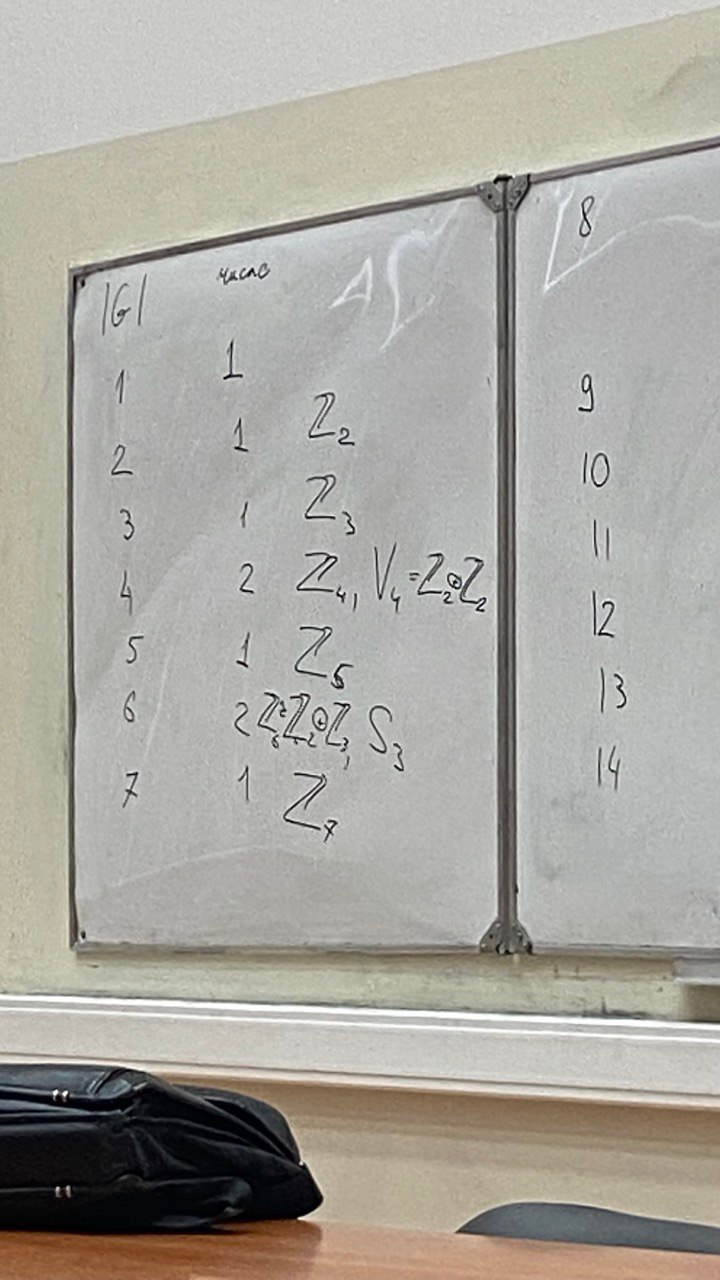 |G| число
1 1
2 1 Z₂
3 1 Z₃
4 2 Z₄, V₄=Z₂⊕Z₂
5 1 Z₅
6 2 Z₆≅Z₂⊕Z₃, S₃
7 1 Z₇
8
9
10
11
12
13
14